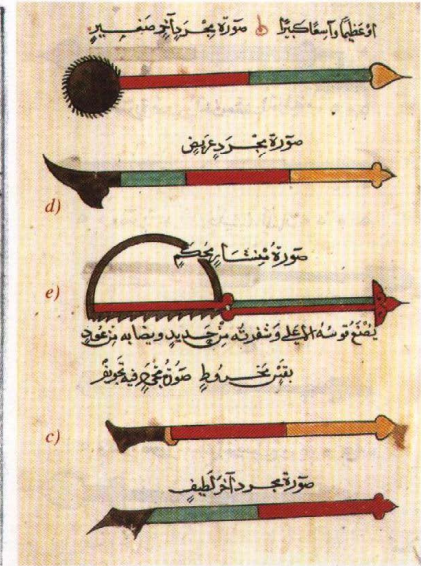 أو عظيمًا واسعًا كبيرًا صورة مجرد آخر صغير
صورة مجرد عريض
d)
صورة منشار محكم
e)
يصنع قوسه الأعلى وشفرته من حديد ونصابه من عود
بقس مخروط صورة مجرد فيه تجويف
c)
صورة مجرد آخر لطيف